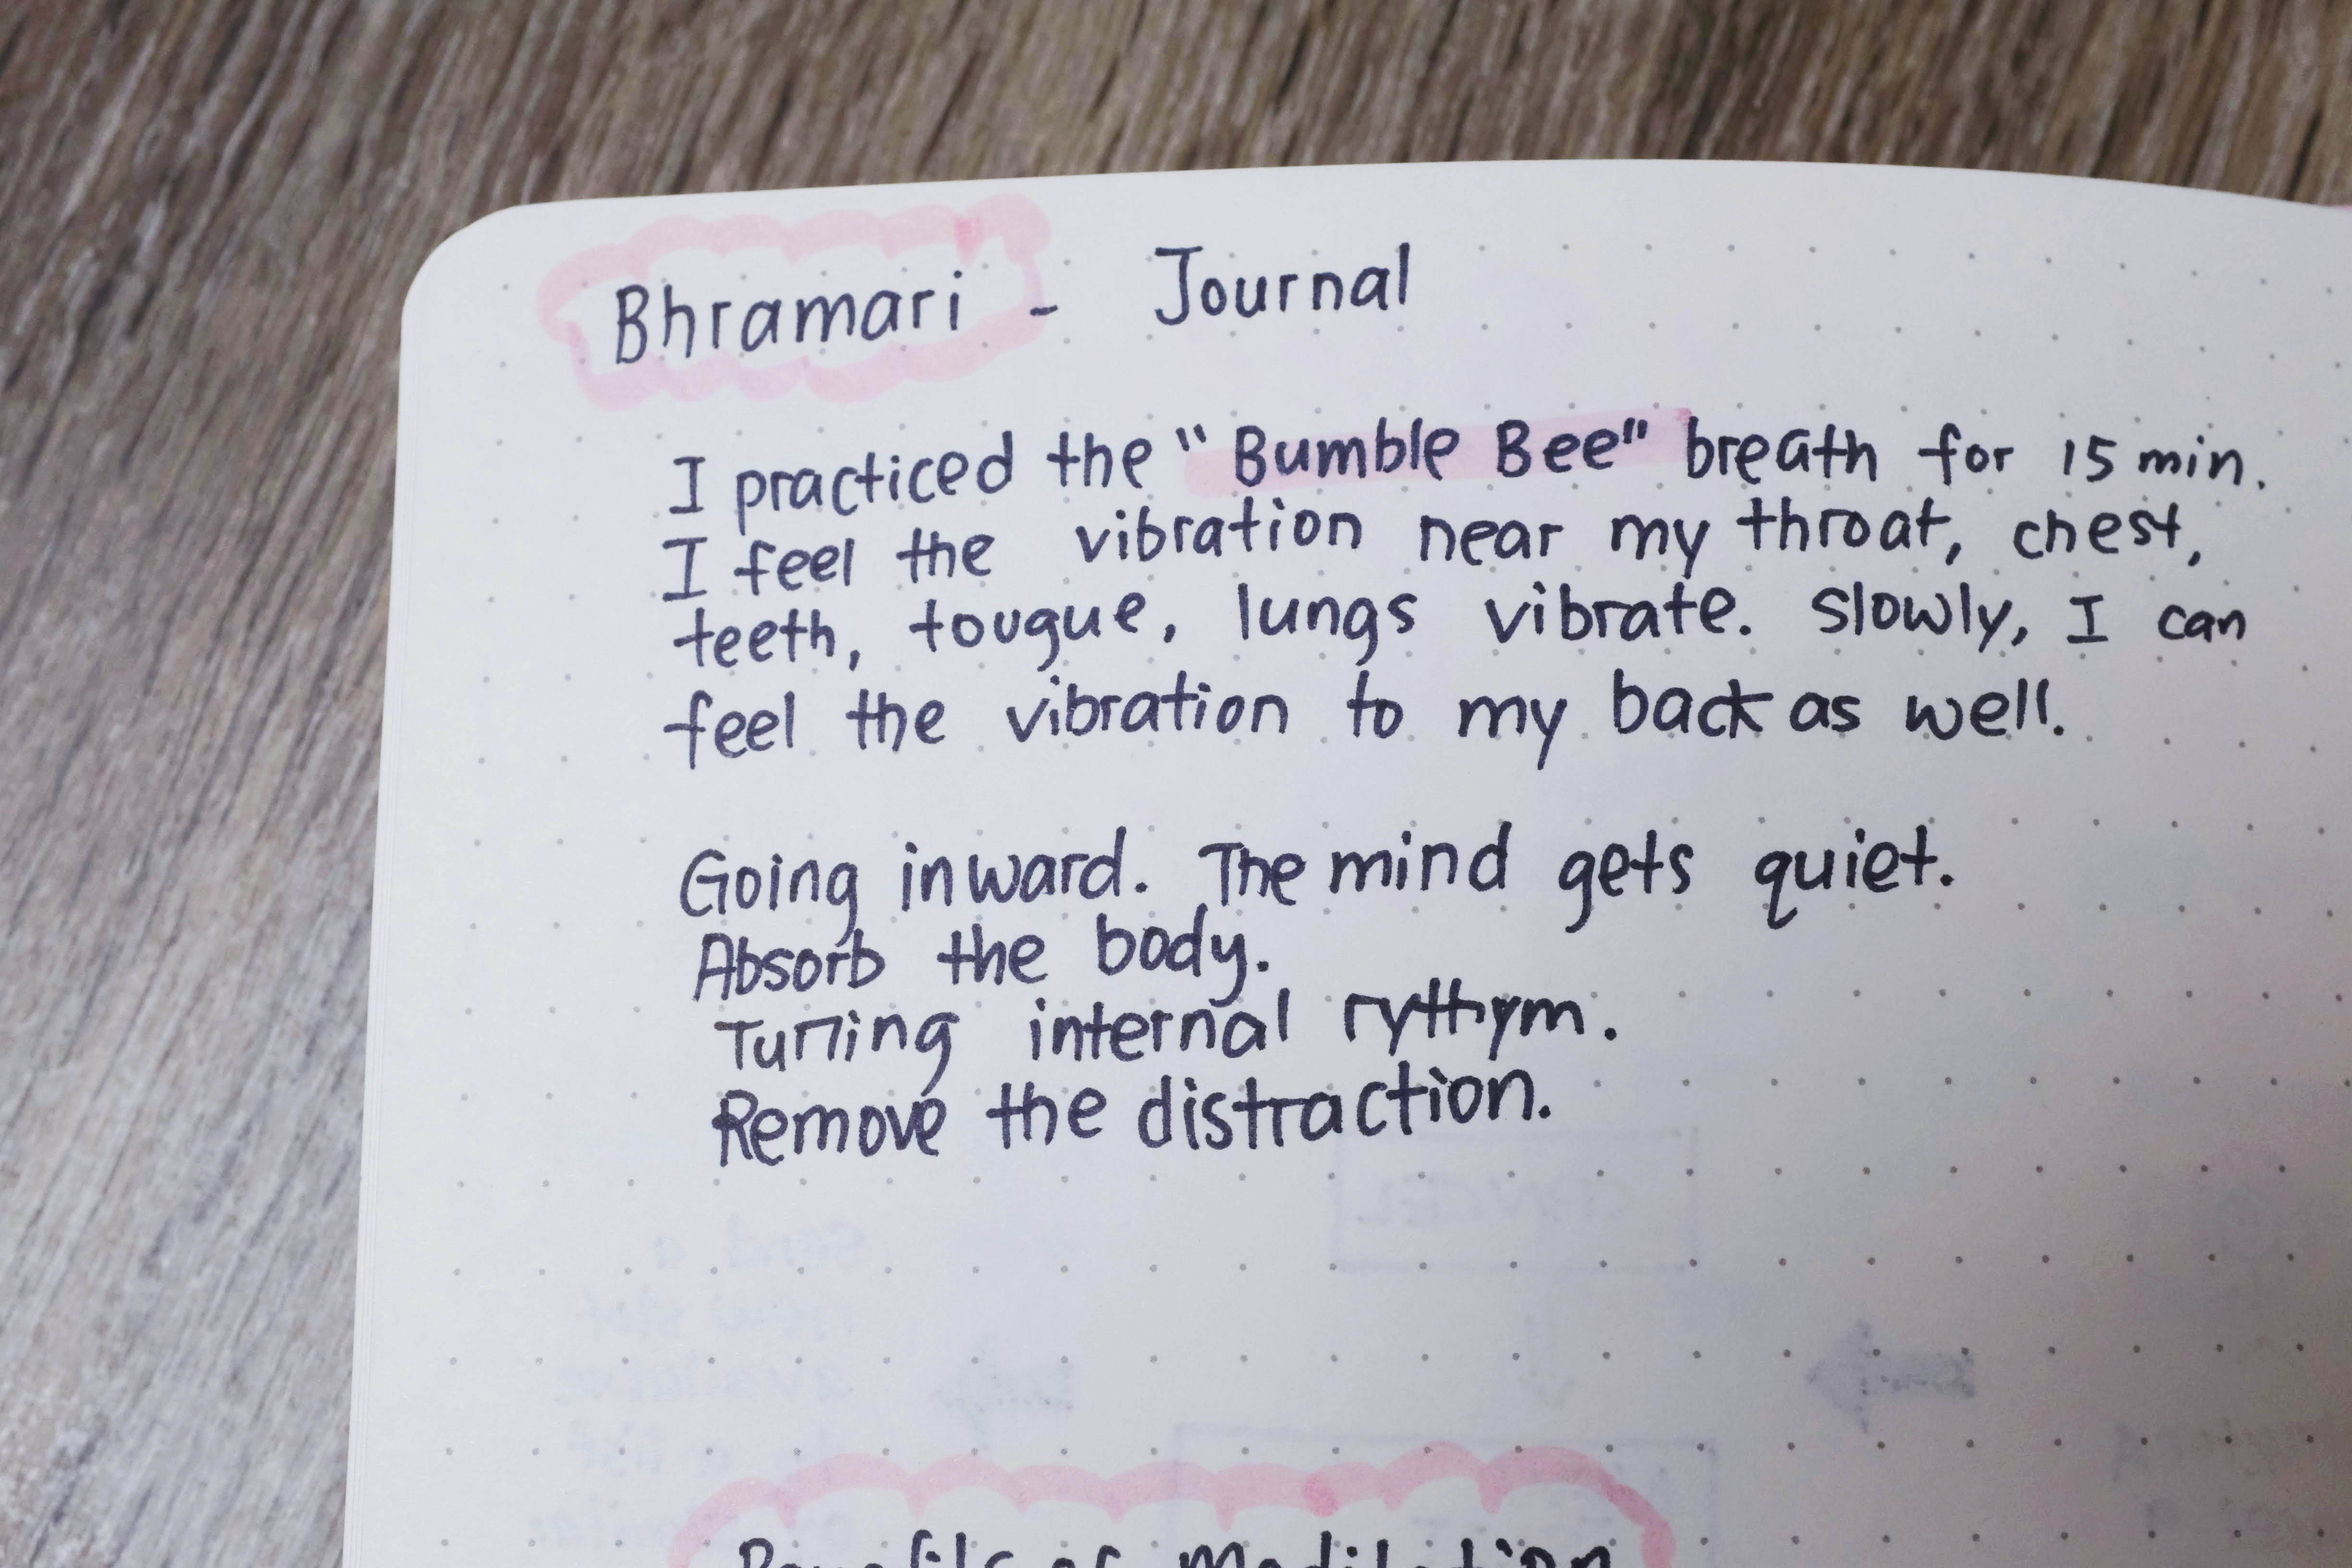 Bhramari - Journal
I practiced the "Bumble Bee" breath for 15 min.
I feel the vibration near my throat, chest,
teeth, tougue, lungs vibrate. Slowly, I can
feel the vibration to my back as well.
Going inward. The mind gets quiet.
Absorb the body.
Turning internal rythym.
Remove the distraction.
Benefits of Meditation